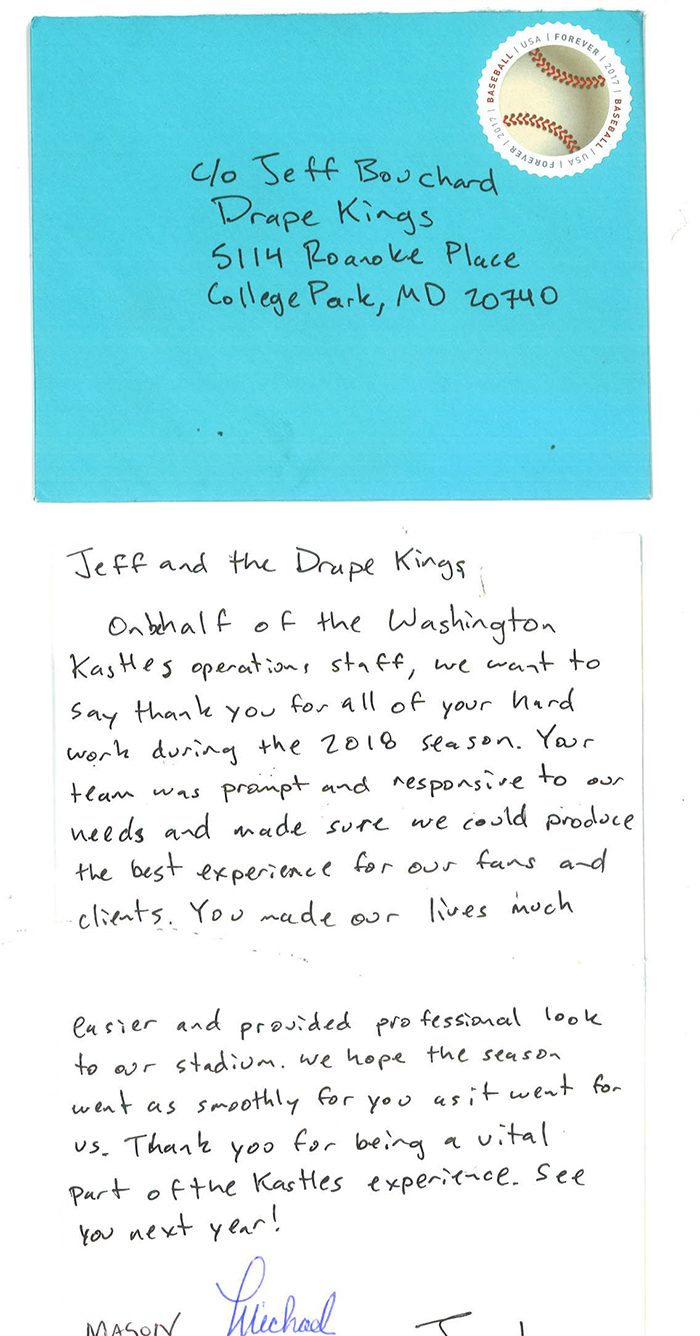 BASEBALL | USA | FOREVER | 2017 | BASEBALL | USA | FOREVER | 2017 |
c/o Jeff Bouchard
Drape Kings
5114 Roanoke Place
College Park, MD 20740
Jeff and the Drape Kings
On behalf of the Washington
Kastles operations staff, we want to
say thank you for all of your hard
work during the 2018 season. Your
team was prompt and responsive to our
needs and made sure we could produce
the best experience for our fans and
clients. You made our lives much
easier and provided professional look
to our stadium. We hope the season
went as smoothly for you as it went for
us. Thank you for being a vital
part of the Kastles experience. See
you next year!
MASON Michael